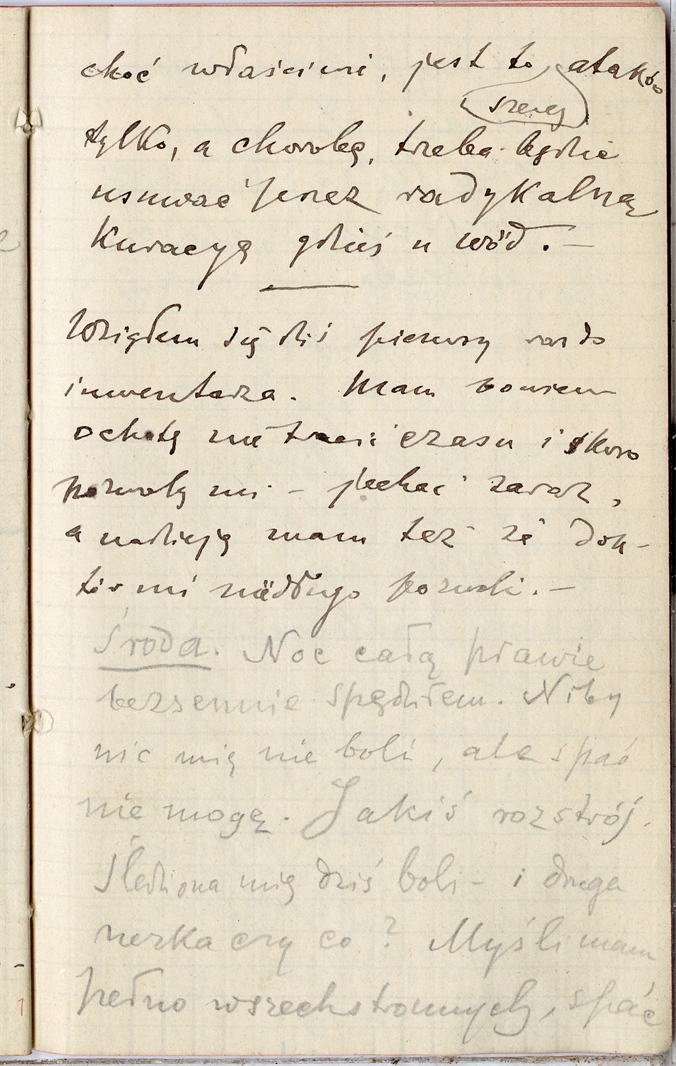 choć właściwi, jest to szereg ataków
tylko, a chorobę, trzeba będzie
usuwać przez radykalną
Kuracyę gdzieś u wód. —
Wziąłem się dziś pierwszy raz do
inwentarza. Mam bowiem
ochotę nie tracić czasu i skoro
pozwolą mi – jechać zaraz,
a nadzieję mam też że dok-
tór mi niedługo pozwoli. —
Środa. Noc całą prawie
bezsennie spędziłem. Niby
nic mię nie boli, ale spać
nie mogę. Jakiś rozstrój.
Śledziona mię dziś boli – i druga
nerka czy co? Myśli mam
pełno wszechstronnych, spać